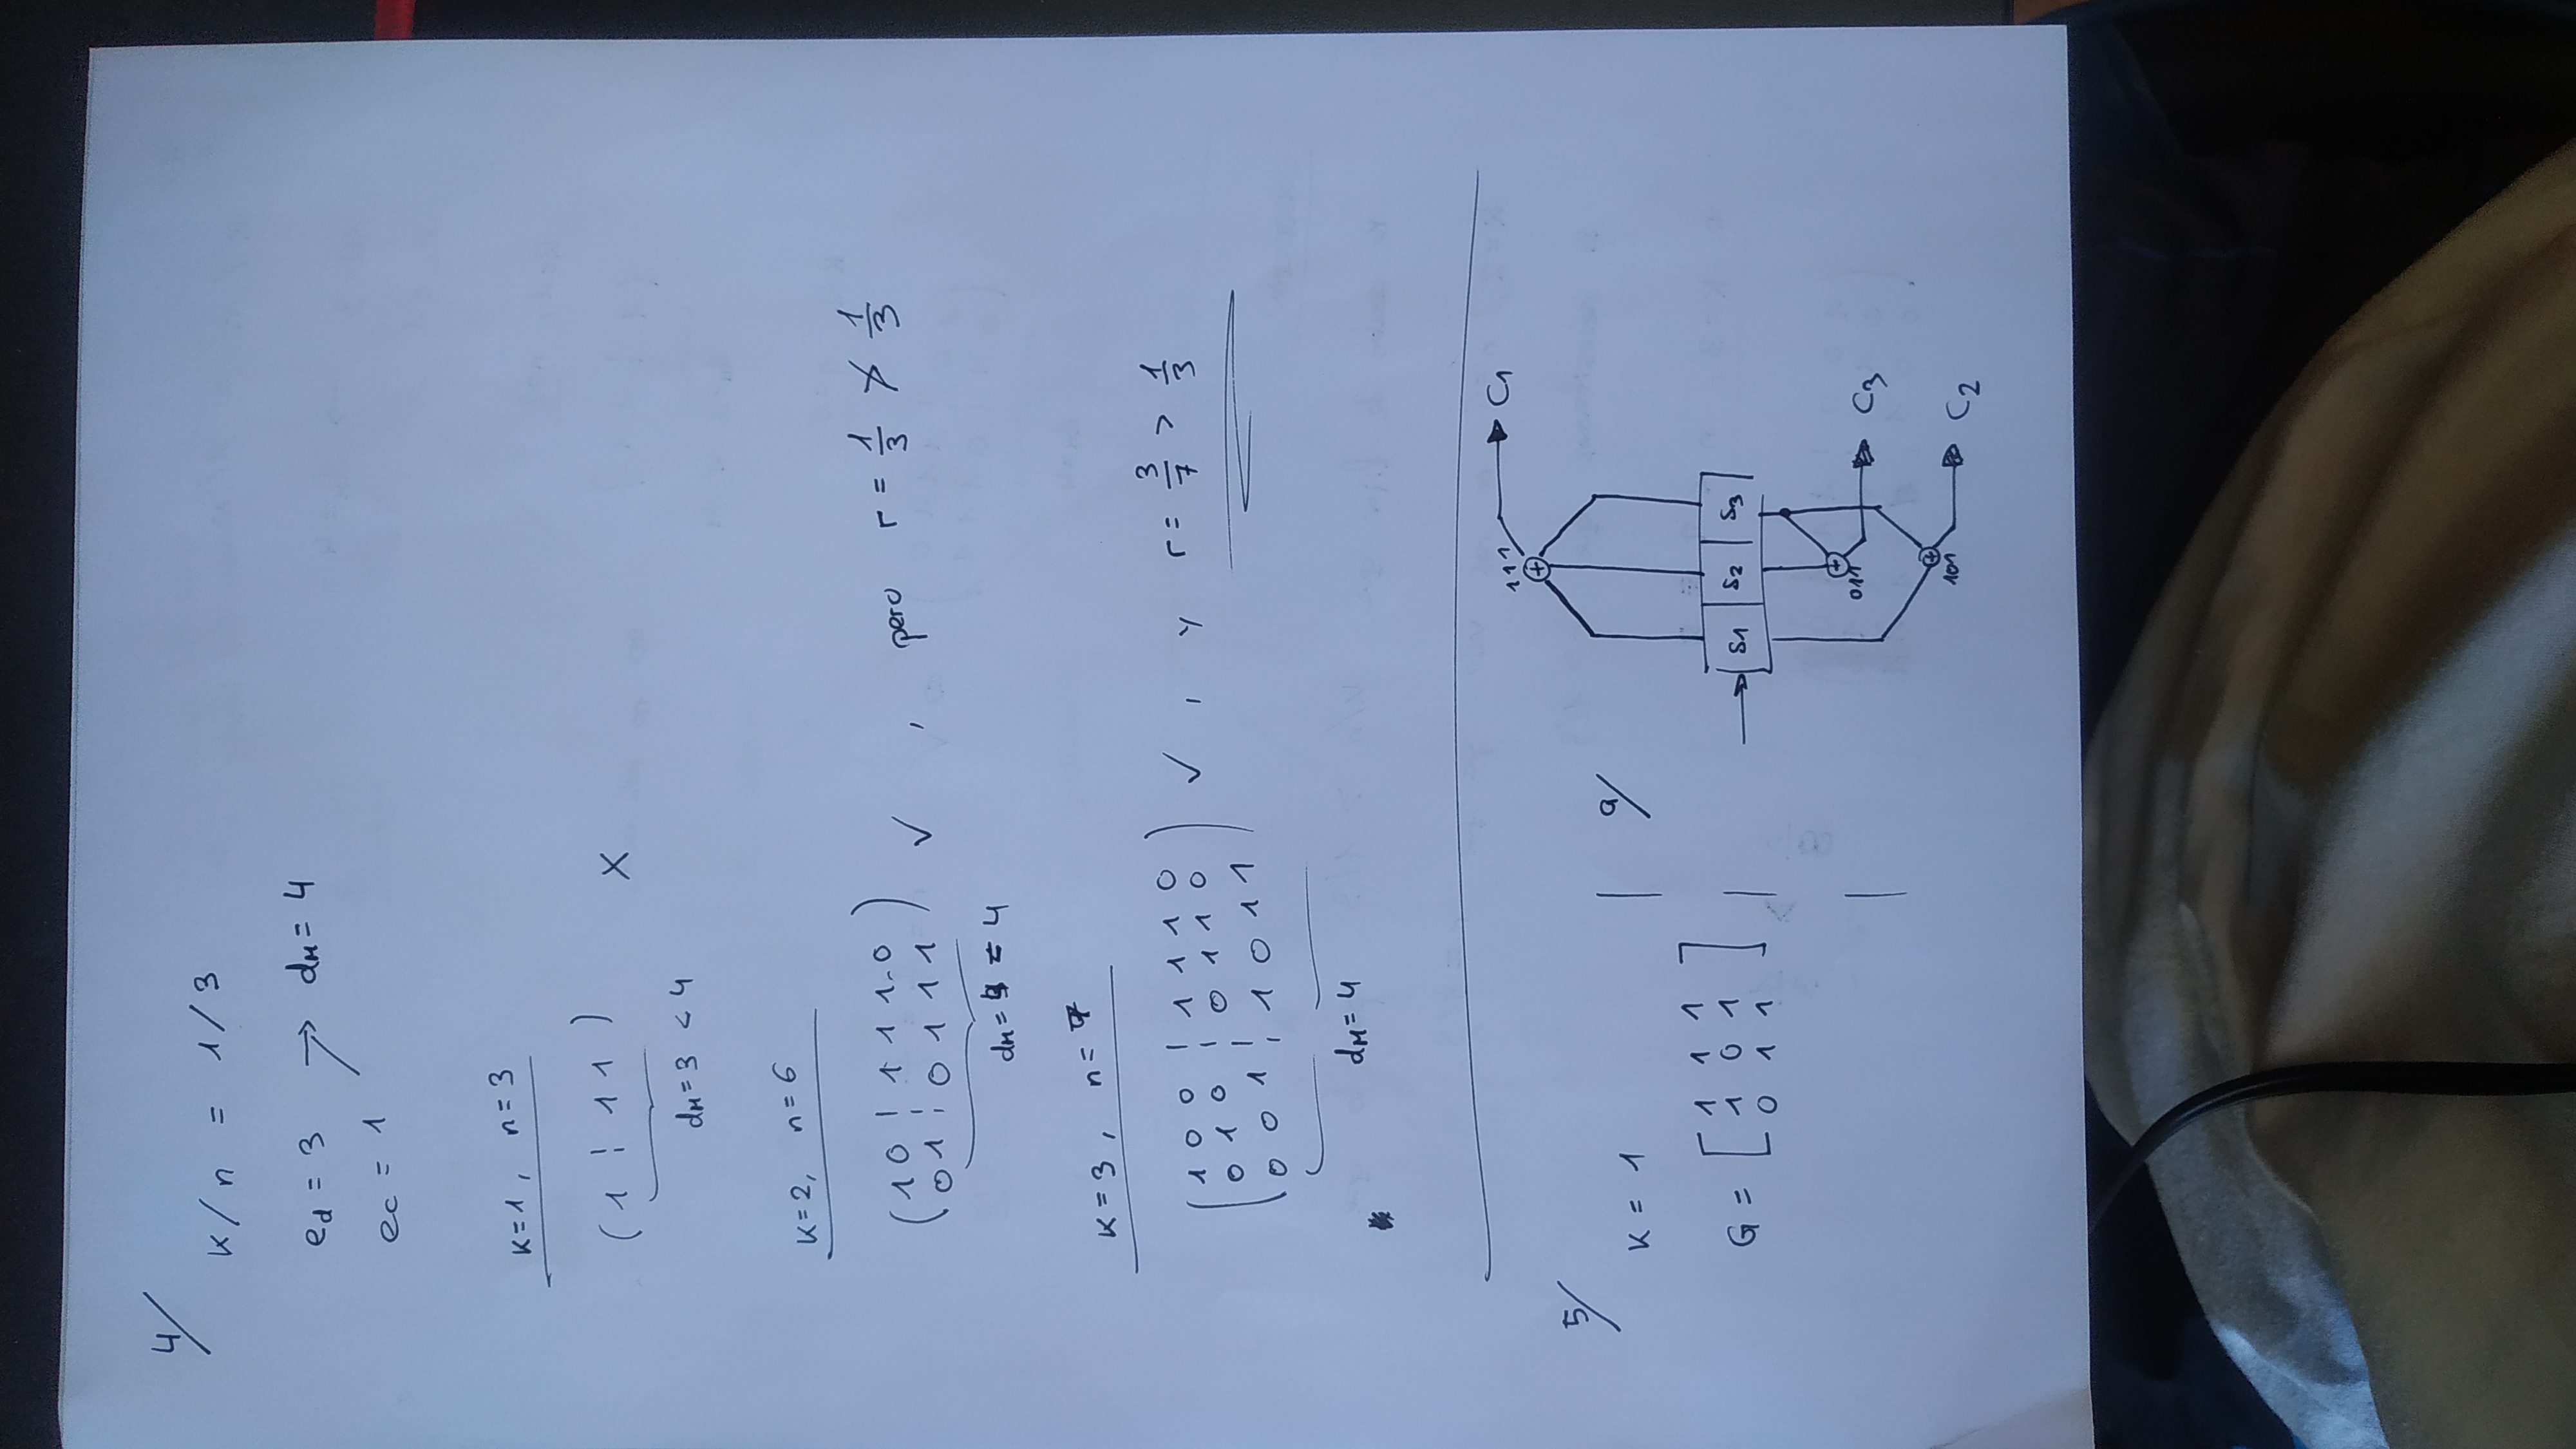 4/
K/n = 1/3
ed = 3 → dM = 4
ec = 1
K=1, n=3
(1 ¦ 1 1) X
dM=3 < 4
K=2, n=6
(1 0 ¦ 1 1 1 0
0 1 ¦ 0 1 1 1) ✓ , pero r = 1/3 ≯ 1/3
dM= 4 = 4
K=3, n=7
(1 0 0 ¦ 1 1 1 0
0 1 0 ¦ 0 1 1 0
0 0 1 ¦ 1 0 1 1) ✓ , y r = 3/7 > 1/3
dM=4
5/
K = 1
G = [1 1 1
1 0 1
0 1 1]
a/
111
C1
S1 S2 S3
011
C3
101
C2